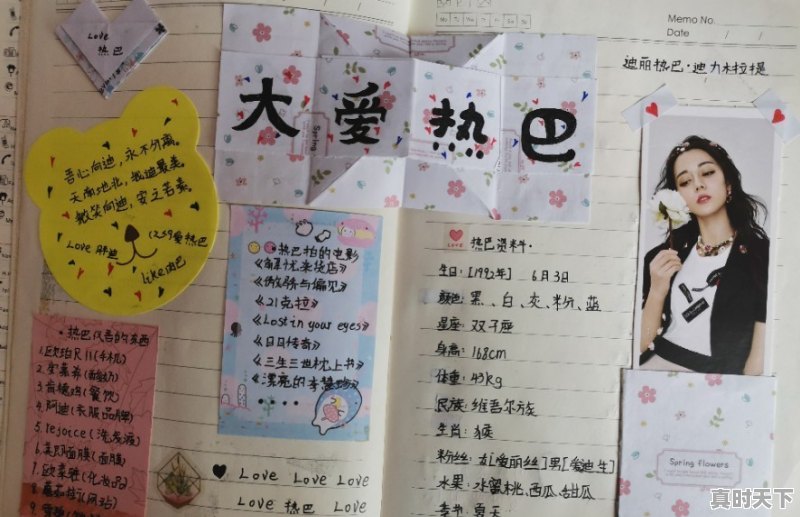 Love
热巴
吾心向迪，永不分离。
天南地北，
微笑向迪，安之若素。
Love 胖迪
爱热巴
like
大爱热巴
Spring
热巴拍的电影
《解忧杂货店》
《傲娇与偏见》
《21克拉》
《Lost in your eyes》
《日日传奇》
《三生三世枕上书》
《漂亮的李慧珍》
热巴代言的东西
1.欧珀R11(手机)
3.肯德鸡(餐饮)
4.阿迪(衣服品牌)
5.rejoice(洗发液)
7.欧莱雅(化妆品)
Love Love Love
Love 热巴 Love
Memo No.
Date / /
Mo Tu We Th Fr Sa Su
迪丽热巴·迪力木拉提
LOVE 热巴资料卡·
生日:[1992年] 6月3日
颜色:黑、白、灰、粉、蓝
星座:双子座
身高:168cm
体重:43kg
民族:维吾尔族
生肖:猴
粉丝:女[爱丽丝]男[爱迪生]
水果:水蜜桃、西瓜、甜瓜
Spring flowers
真时天下